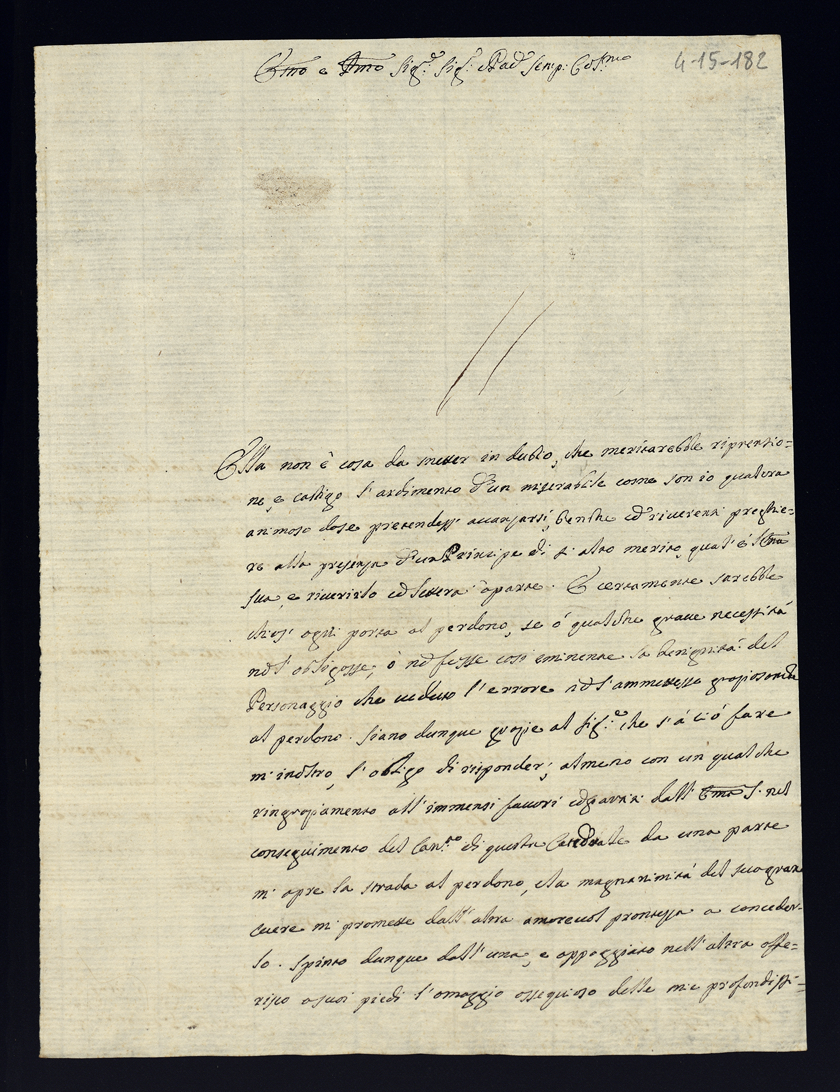 Emo e Rmo Sig.e Sig.e Pad.e Semp: Col.mo
4-15-182
Ella non è cosa da metter in dubio, che meritarebbe riprensio=
ne, e castigo l'ardimento d'un miserabile come son io qualora
animoso dose pretendesse avanzarsi, benche cõ riverenti preghie=
re alla presenza d'un Principe di sì alto merito, qual'è l'Ema
sua, e riverirlo cõ lettera à parte. E certamente sarebbe
chiusa ogni porta al perdono, se ò qualche grave necessità
nõ l'obligasse, ò nõ fusse così eminente la benignità del
Personaggio che veduto l'errore nõ l'ammettesse graziosamte
al perdono. Siano dunque grazie al Sig.e che s'à ciò fare
m'inoltro, l'obligo di risponder, almeno con un qualche
ringraziamento all'immensi favori cõpartiti dall'Ema S. nel
conseguimento del Can.to di questa Catedrale da una parte
mi apre la strada al perdono, e la magnanimità del suo gran
cuore mi promette dall'altra amorevol prontezza a conceder-
lo. Spinto dunque dall'una, e appoggiato nell'altra offe=
risco a suoi piedi l'omaggio ossequioso delle mie profondissi=